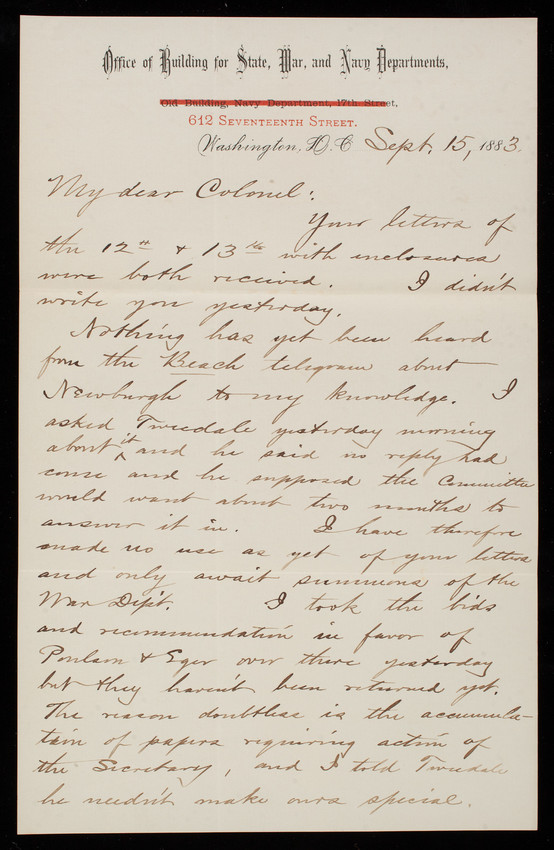 Office of Building for State, War, and Navy Departments,
Old Building, Navy Department, 17th Street,
612 Seventeenth Street.
Washington, D. C. Sept. 15, 1883.
My dear Colonel:
Your letters of
the 12th & 13th with inclosures
were both received. I didn't
write you yesterday.
Nothing has yet been heard
from the Beach telegram about
Newburgh to my knowledge. I
asked Tweedale yesterday morning
about it and he said no reply had
come and he supposed the Committee
would want about two months to
answer it in. I have therefore
made no use as yet of your letters
and only await summons of the
War Dep't. I took the bids
and recommendation in favor of
Poulson & Eger over there yesterday
but they haven't been returned yet.
The reason doubtless is the accumula-
tion of papers requiring action of
the Secretary, and I told Tweedale
he needn't make ours special.